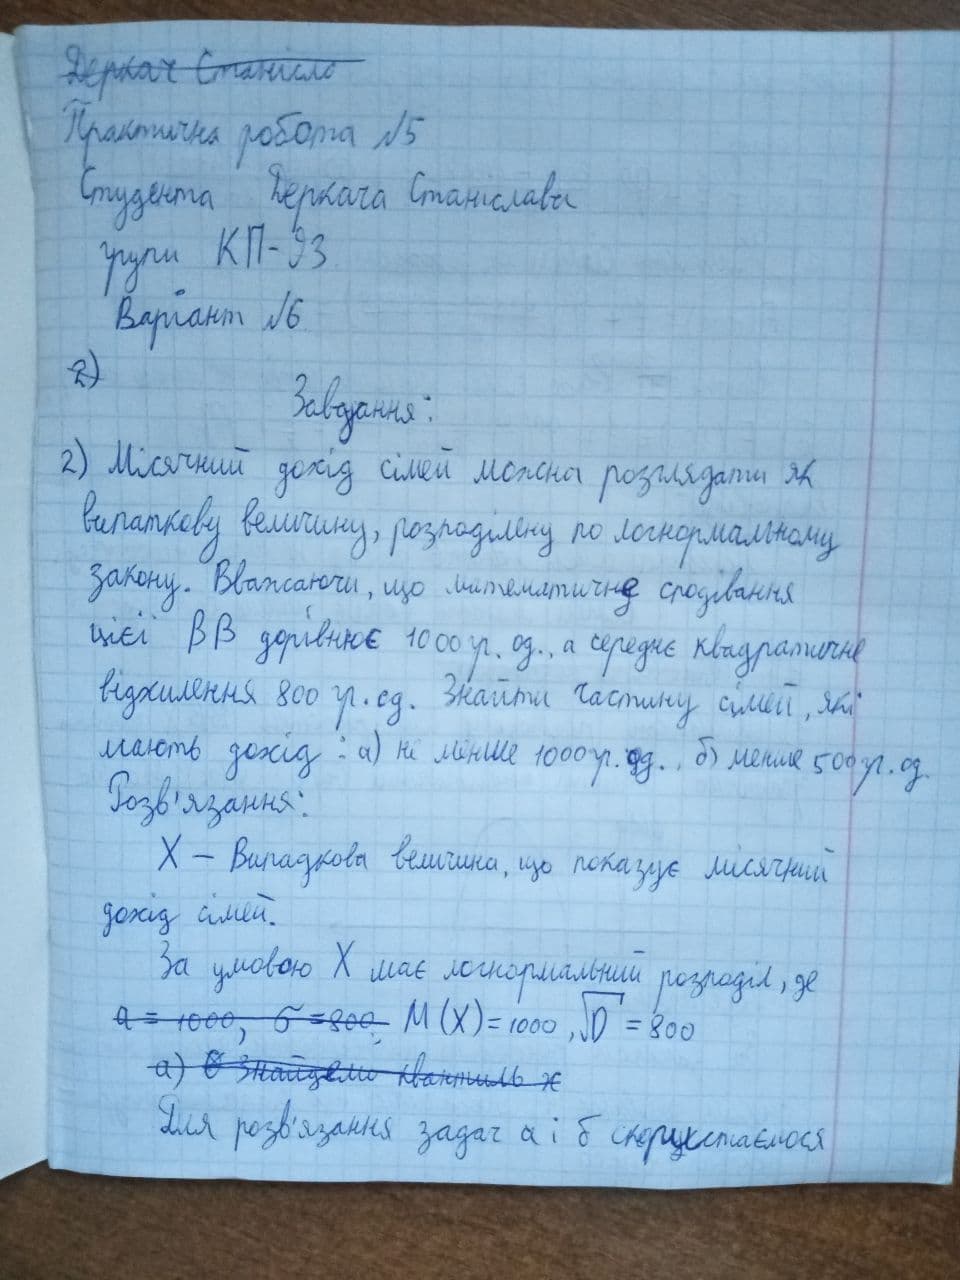 Деркач Станісло
Практична робота №5
Студента Деркача Станіслава
групи КП-93
Варіант №6
2)
Завдання:
2) Місячний дохід сімей можна розглядати як
випаткову величину, розподілену по логнормальному
закону. Вважаючи, що математичне сподівання
цієї ВВ дорівнює 1000 гр. од., а середнє квадратичне
відхилення 800 гр. од. Знайти частину сімей, які
мають дохід: а) не менше 1000 гр. од., б) менше 500 гр. од.
Розв'язання:
X – Випадкова величина, що показує місячний
дохід сімей.
За умовою X має логнормальний розподіл, де
a = 1000, σ = 800, M(X) = 1000, √D = 800
а) Знайдемо квантиль x
Для розв'язання задач а і б скористаємося